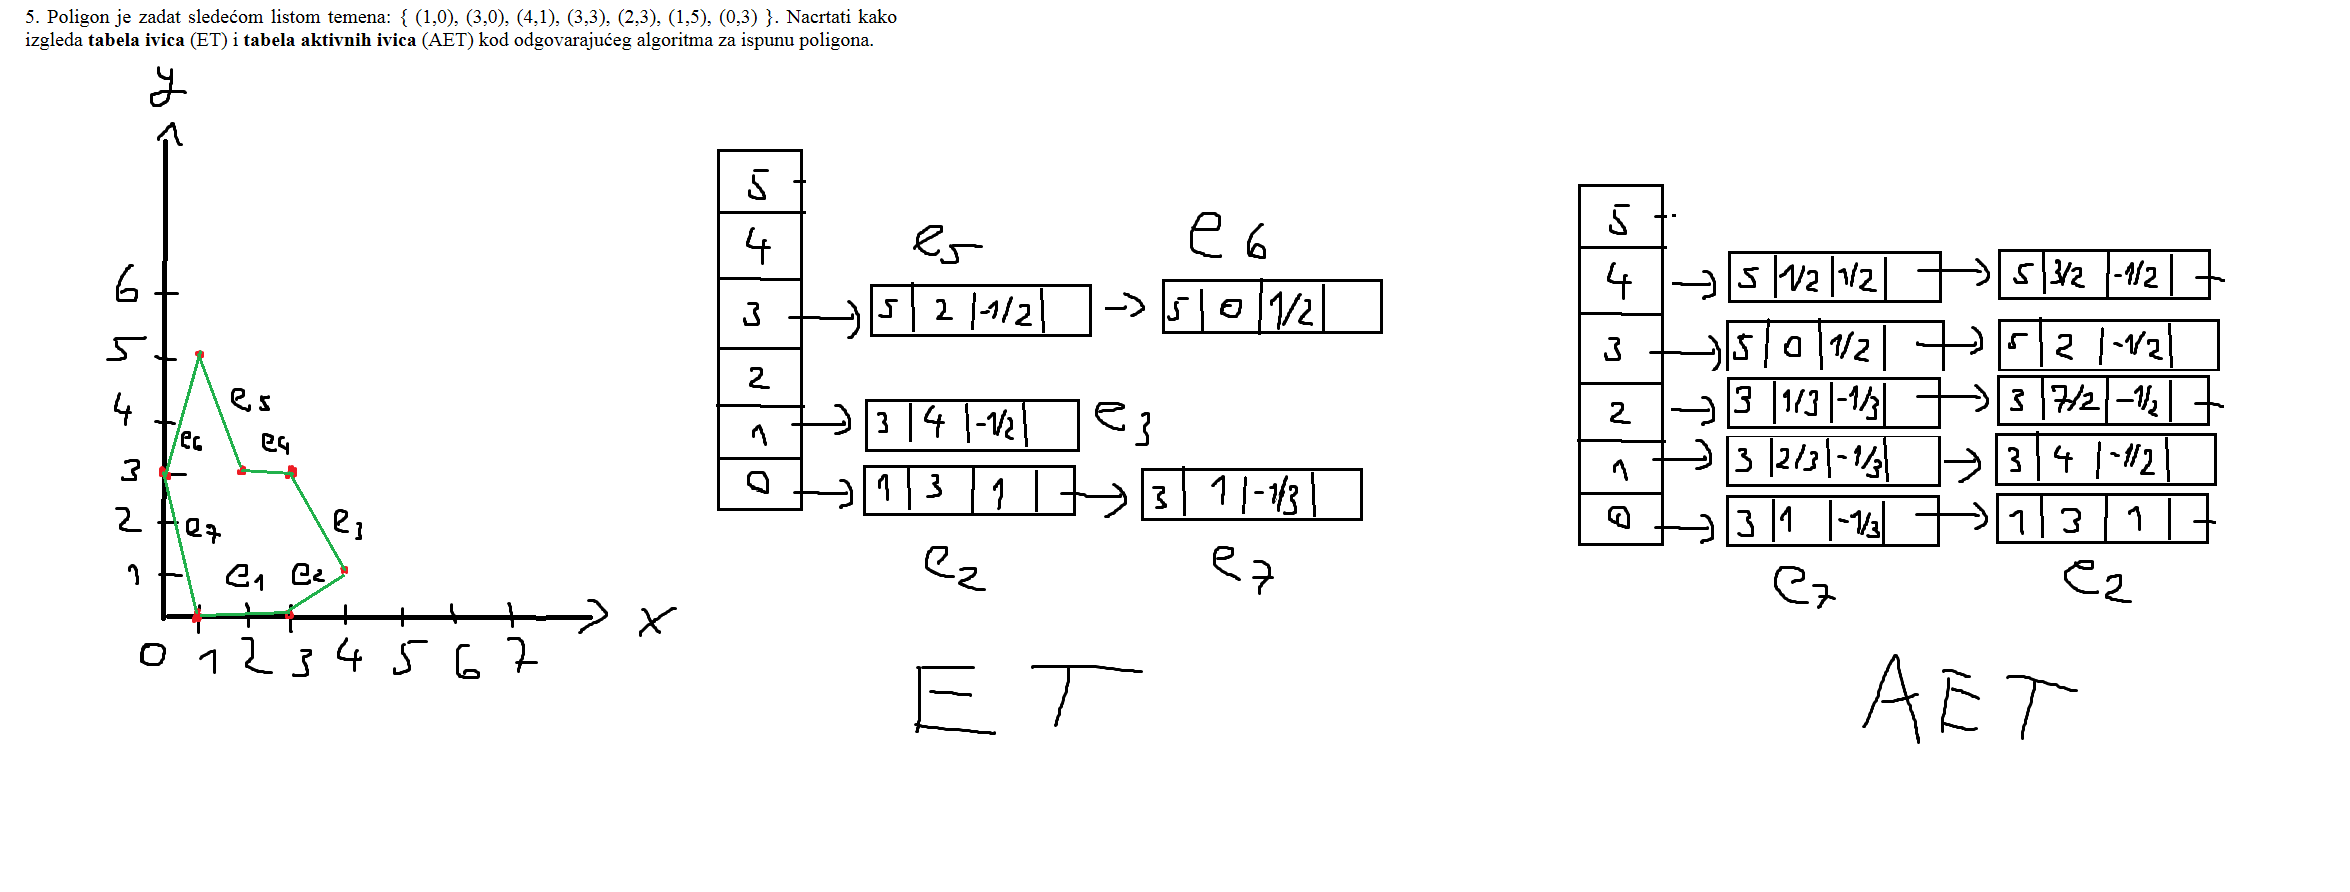 5. Poligon je zadat sledećom listom temena: { (1,0), (3,0), (4,1), (3,3), (2,3), (1,5), (0,3) }. Nacrtati kako
izgleda tabela ivica (ET) i tabela aktivnih ivica (AET) kod odgovarajućeg algoritma za ispunu poligona.
y
6
5
4
3
2
1
0 1 2 3 4 5 6 7
x
e5
e6 e4
e7 e3
e1 e2
5
4
e5 e6
3 5 2 -1/2 5 0 1/2
2
1 3 4 -1/2 e3
0 1 3 1 3 1 -1/3
e2 e7
ET
5
4 5 1/2 1/2 5 3/2 -1/2
3 5 0 1/2 5 2 -1/2
2 3 1/3 -1/3 3 7/2 -1/2
1 3 2/3 -1/3 3 4 -1/2
0 3 1 -1/3 1 3 1
e7 e2
AET